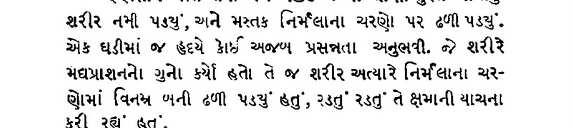 શરીર નમી પડયું, અને મસ્તક નિર્મલાના ચરણો પર ઢળી પડયું.
એક ઘડીમાં જ હૃદયે કોઈ અજબ પ્રસન્નતા અનુભવી. જે શરીરે
મદ્યપ્રાશનનો ગુનો કર્યો હતો તે જ શરીર અત્યારે નિર્મલાના ચર-
ણોમાં વિનમ્ર બની ઢળી પડયું હતું, રડતું રડતું તે ક્ષમાની યાચના
કરી રહ્યું હતું.